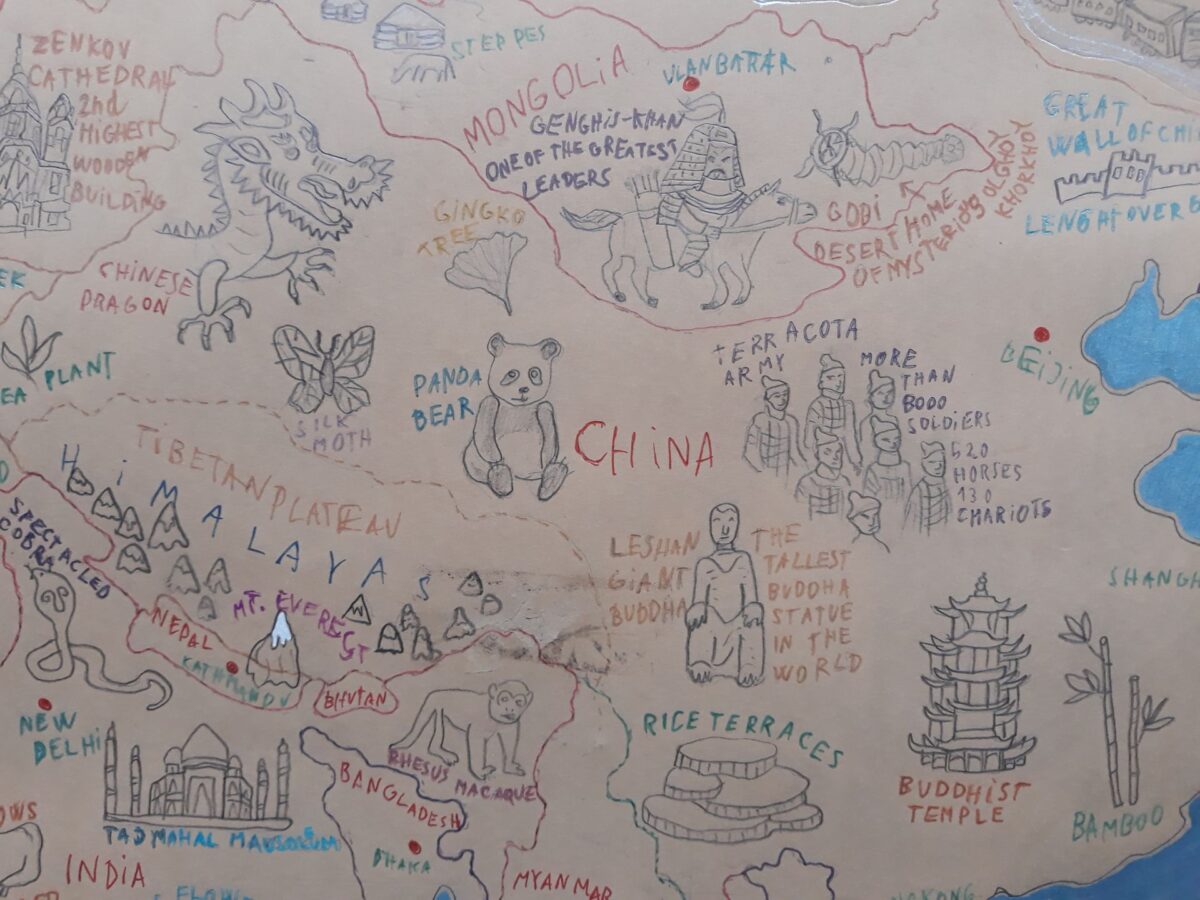 ZENKOV
CATHEDRAL
2nd
HIGHEST
WOODEN
BUILDING
STEPPES
MONGOLiA
ULANBATAR
GENGHiS-KHAN
ONE OF THE GREATEST
LEADERS
GOBI
DESERT HOME
OF MYSTERIOUS OLGHOY
KHORKHOY
GREAT
WALL OF CHI
LENGHT OVER
CHINESE
DRAGON
GINGKO
TREE
EK
EA PLANT
SILK
MOTH
PANDA
BEAR
CHiNA
TERRACOTA
ARMY
MORE
THAN
8000
SOLDiERS
520
HORSES
130
CHARIOTS
BEIJING
TiBETAN PLATEAU
HiMALAYAS
SPECTACLED
COBRA
MT. EVEREST
NEPAL
KATHMANDU
BHUTAN
LESHAN
GiANT
BUDDHA
THE
TALLEST
BUDDHA
STATUE
IN THE
WORLD
SHANGH
NEW
DELHi
TADMAHAL MAUSOLEUM
RHESUS MACAQUE
BANGLADESH
DHAKA
RICE TERRACES
BUDDHIST
TEMPLE
BAMBOO
OWS
INDiA
MYANMAR